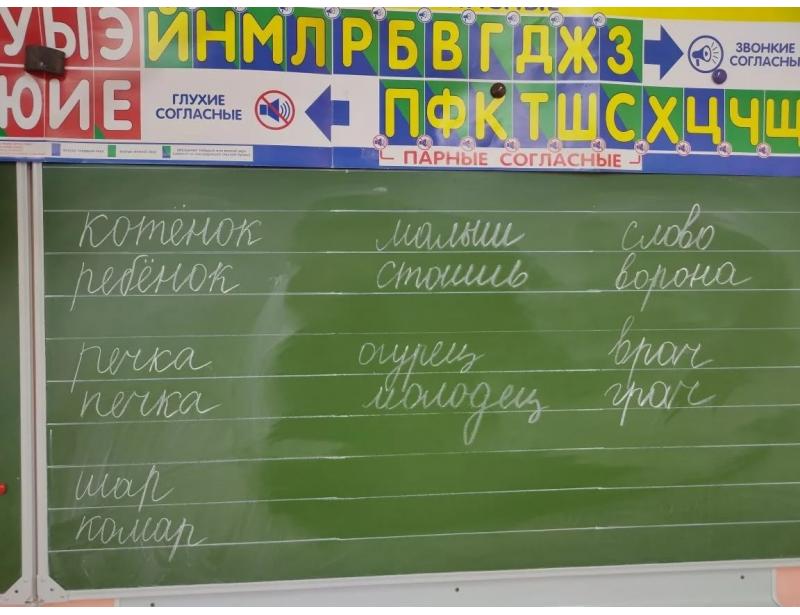 УЫЭ ЙНМЛРБВГДЖЗ ЗВОНКИЕ СОГЛАСНЫ
ЮИЕ ГЛУХИЕ СОГЛАСНЫЕ ПФКТШСХЦЧЩ
ПАРНЫЕ СОГЛАСНЫЕ
котёнок малыш слово
ребёнок стоишь ворона
речка огурец врач
печка молодец грач
шар
комар